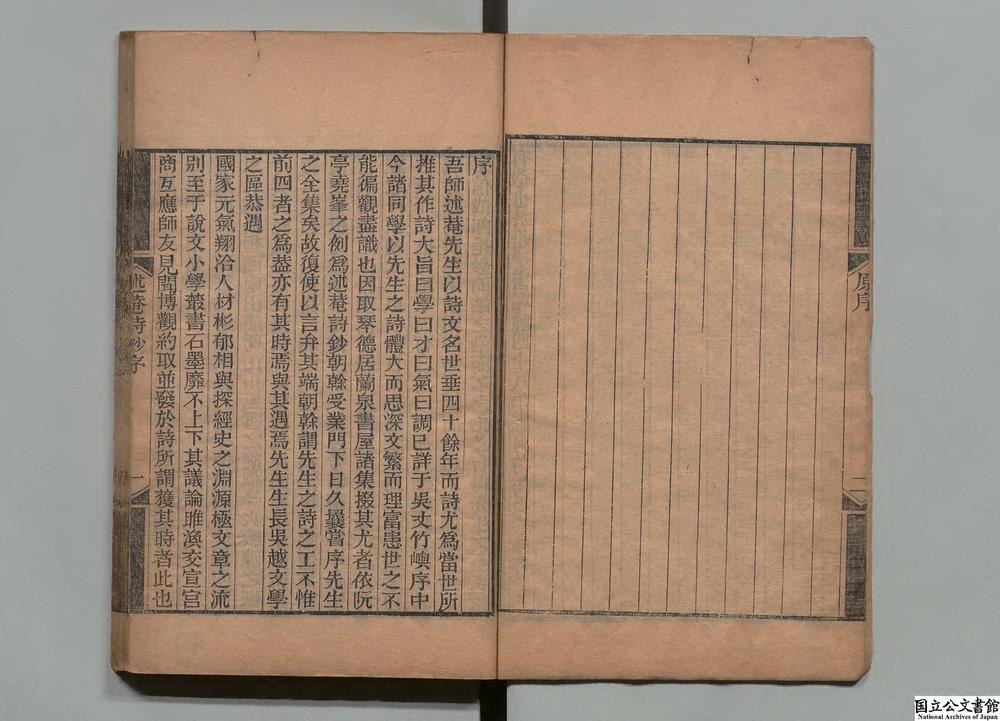 原序
二
序
吾師述菴先生以詩文名世垂四十餘年而詩尤為當世所
推其作詩大旨曰學曰才曰氣曰調已詳于吳丈竹嶼序中
今諸同學以先生之詩體大而思深文繁而理富患世之不
能徧觀盡識也因取琴德居蘭泉書屋諸集掇其尤者依阮
亭堯峯之例為述菴詩鈔朝榦受業門下日久曩嘗序先生
之全集矣故復使以言弁其端朝榦謂先生之詩之工不惟
前四者之為葢亦有其時焉與其遇焉先生生長吳越文學
之區恭遇
國家元氣翔洽人材彬郁相與探經史之淵源極文章之流
別至于說文小學叢書石墨靡不上下其議論雎渙交宣宮
商互應師友見聞博觀約取並發於詩所謂獲其時者此也
述菴詩鈔序
一
国立公文書館
National Archives of Japan